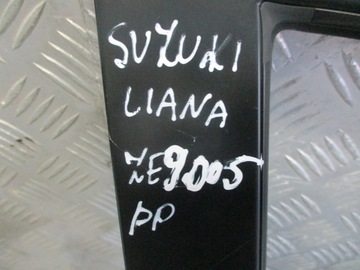 SUZUKI
LIANA
9005
PP